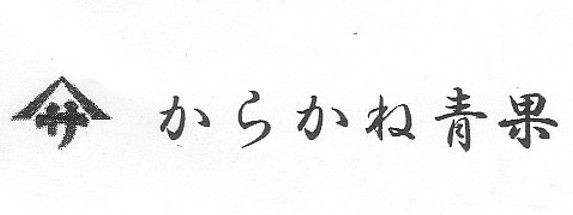 サ からかね青果